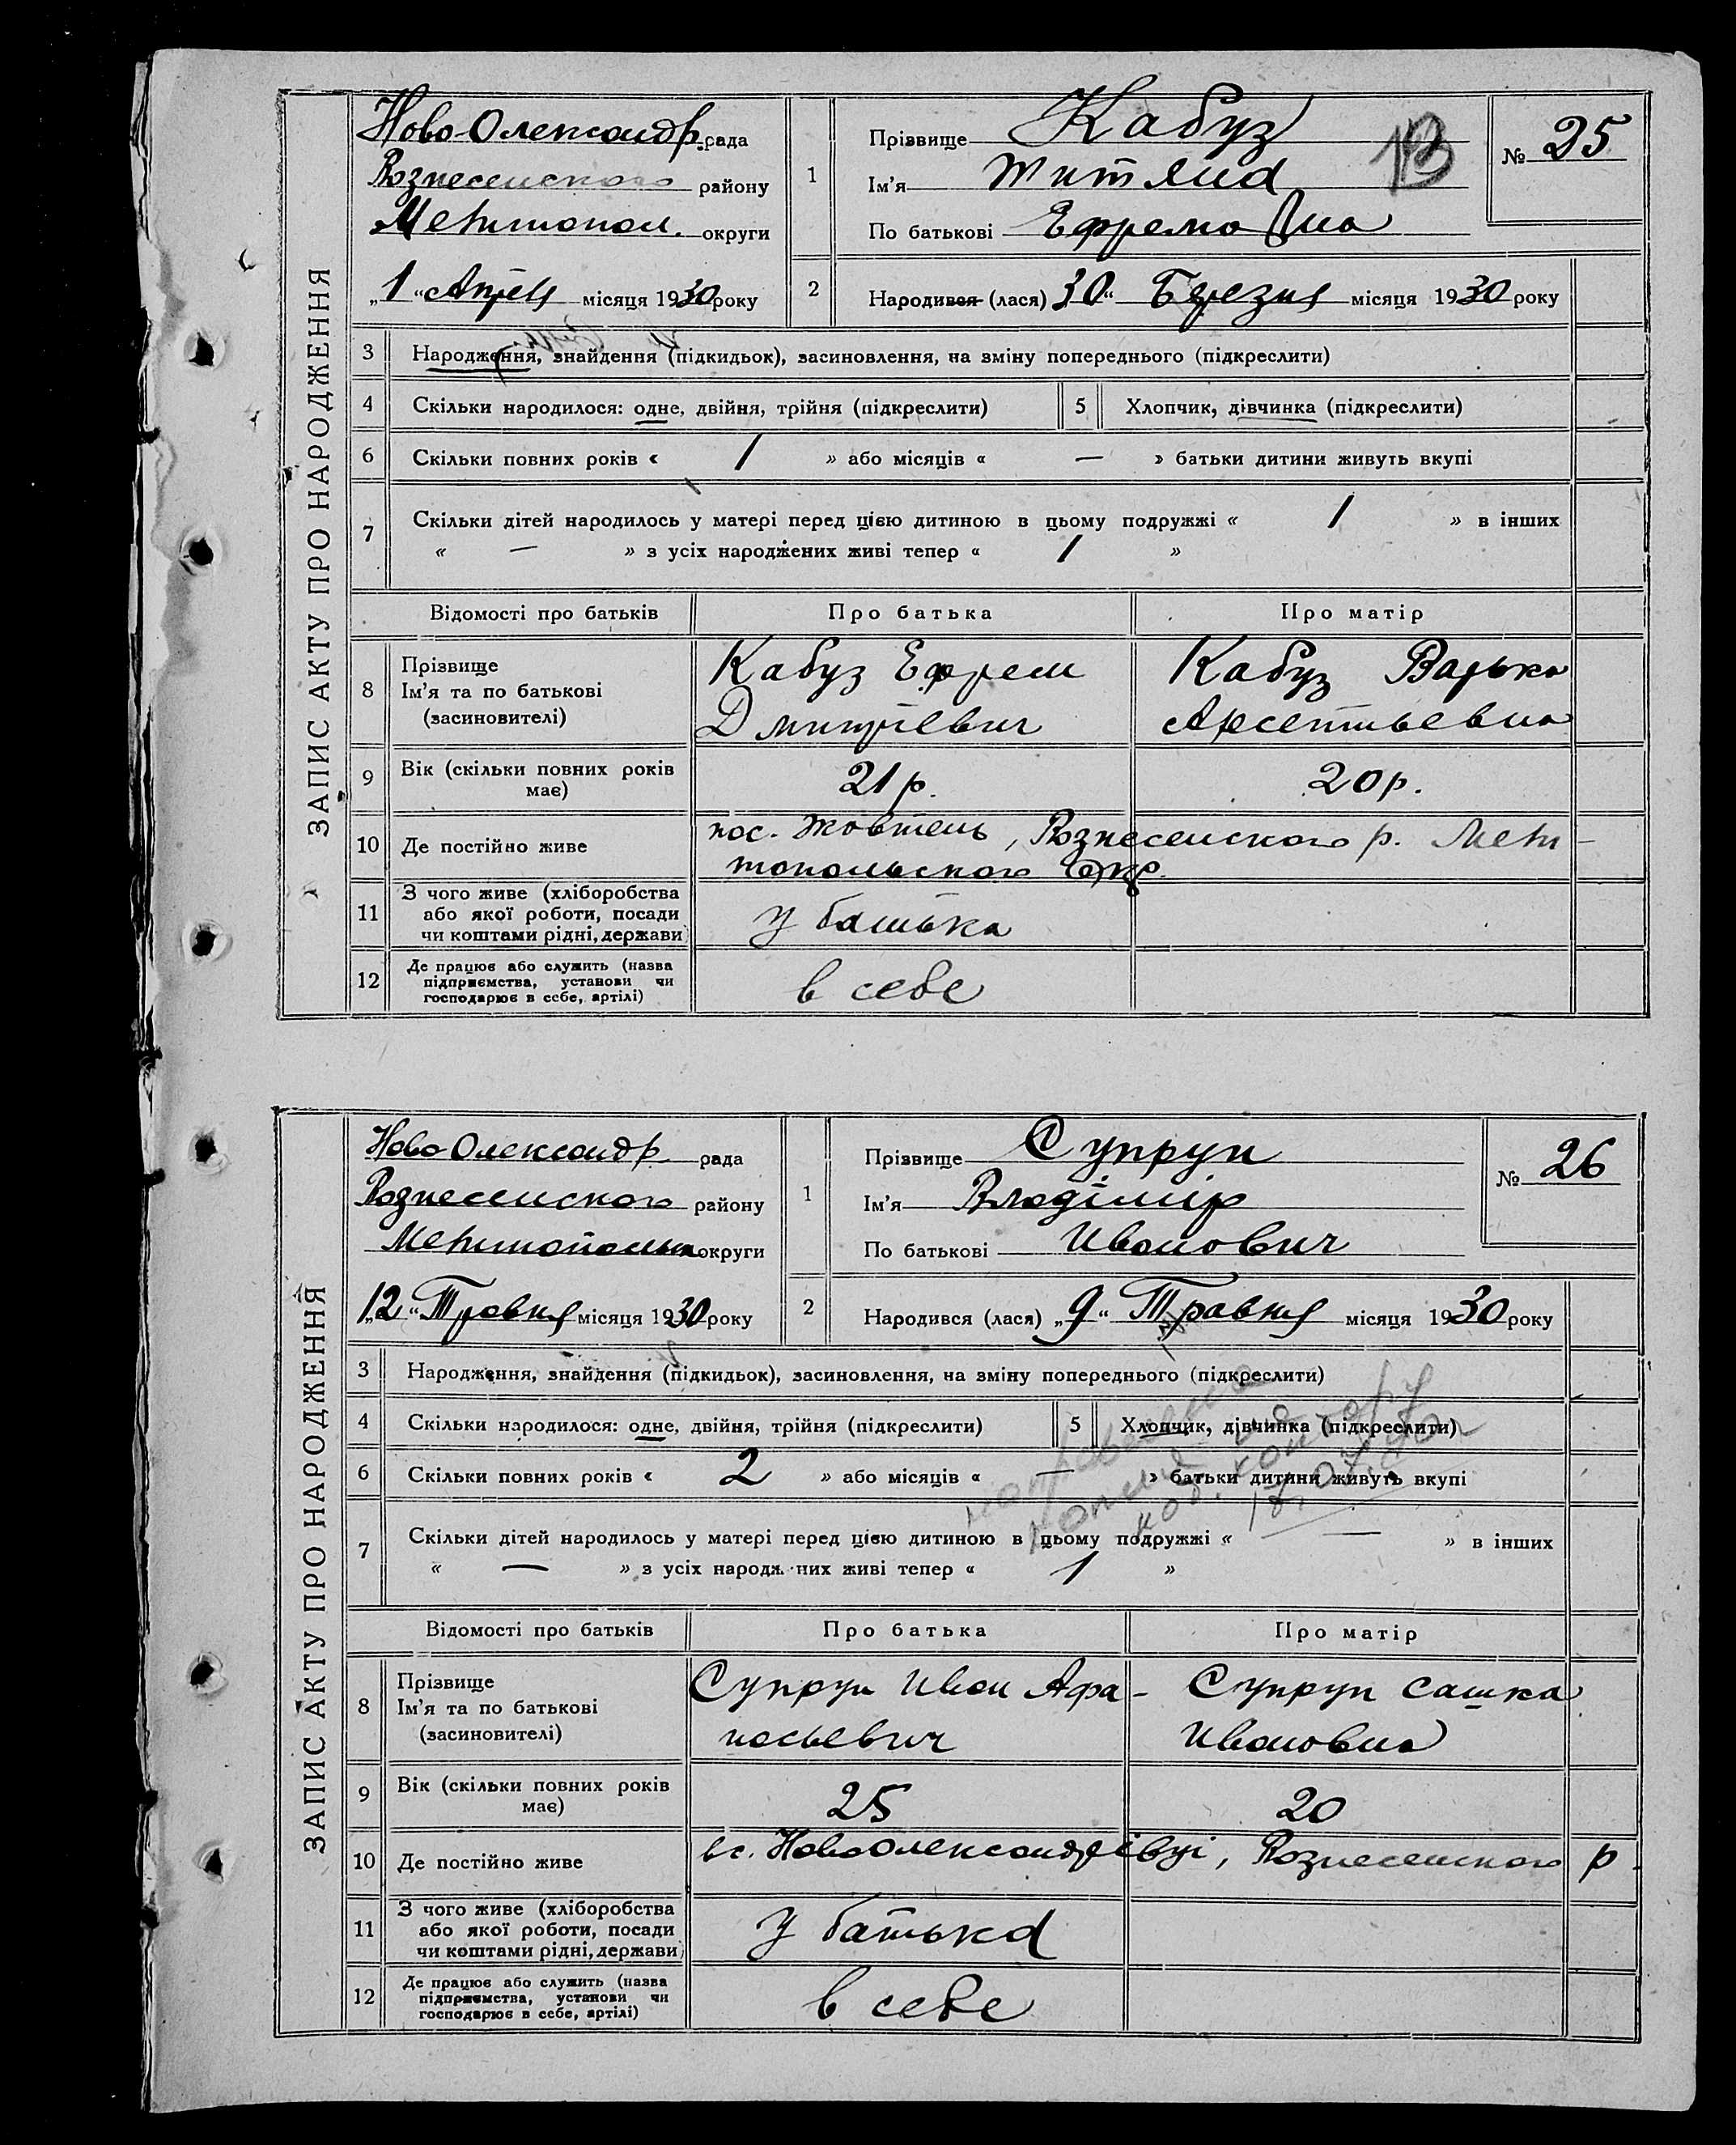 ЗАПИС АКТУ ПРО НАРОДЖЕННЯ
Ново-Олександр. рада
Вознесенского району
Мелітопол. округи
„1“ Апреля місяця 1930 року
1 Прізвище Кабуз
Ім'я
По батькові Ефремовна
№ 25
2 Народився (лася) 30“ Березня місяця 1930 року
3 Народження, знайдення (підкидьок), засиновлення, на зміну попереднього (підкреслити)
4 Скільки народилося: одне, двійня, трійня (підкреслити) 5 Хлопчик, дівчинка (підкреслити)
6 Скільки повних років « 1 » або місяців « — » батьки дитини живуть вкупі
7 Скільки дітей народилось у матері перед цією дитиною в цьому подружжі « 1 » в інших
« — » з усіх народжених живі тепер « 1 »
Відомості про батьків Про батька Про матір
8 Прізвище
Ім'я та по батькові
(засиновителі)
Кабуз Ефрем
Дмитрієвич
Кабуз Варька
Арсентьевна
9 Вік (скільки повних років має) 21 р. 20 р.
10 Де постійно живе пос. Жовтень, Вознесенского р. Мелі-
топольского Окр.
11 З чого живе (хліборобства
або якої роботи, посади
чи коштами рідні, держави)
У батька
12 Де працює або служить (назва
підприємства, установи чи
господарює в себе, артілі)
в себе
ЗАПИС АКТУ ПРО НАРОДЖЕННЯ
Ново-Олександр рада
Вознесенского району
округи
„12“ Травня місяця 1930 року
1 Прізвище Супрун
Ім'я Владімір
По батькові Иванович
№ 26
2 Народився (лася) „9“ Травня місяця 1930 року
3 Народження, знайдення (підкидьок), засиновлення, на зміну попереднього (підкреслити)
4 Скільки народилося: одне, двійня, трійня (підкреслити) 5 Хлопчик, дівчинка (підкреслити)
6 Скільки повних років « 2 » або місяців « — » батьки дитини живуть вкупі
7 Скільки дітей народилось у матері перед цією дитиною в цьому подружжі « — » в інших
« — » з усіх народж них живі тепер « 1 »
Відомості про батьків Про батька Про матір
8 Прізвище
Ім'я та по батькові
(засиновителі)
Супрун Иван Афа-
насьевич
Супрун Сашка
Ивановна
9 Вік (скільки повних років має) 25 20
10 Де постійно живе в с. Новоолександрівці, Вознесенского р.
11 З чого живе (хліборобства
або якої роботи, посади
чи коштами рідні, держави)
У батька
12 Де працює або служить (назва
підприємства, установи чи
господарює в себе, артілі)
в себе